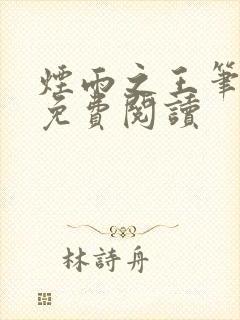 煙雨之王筆
免費閱讀
林詩舟